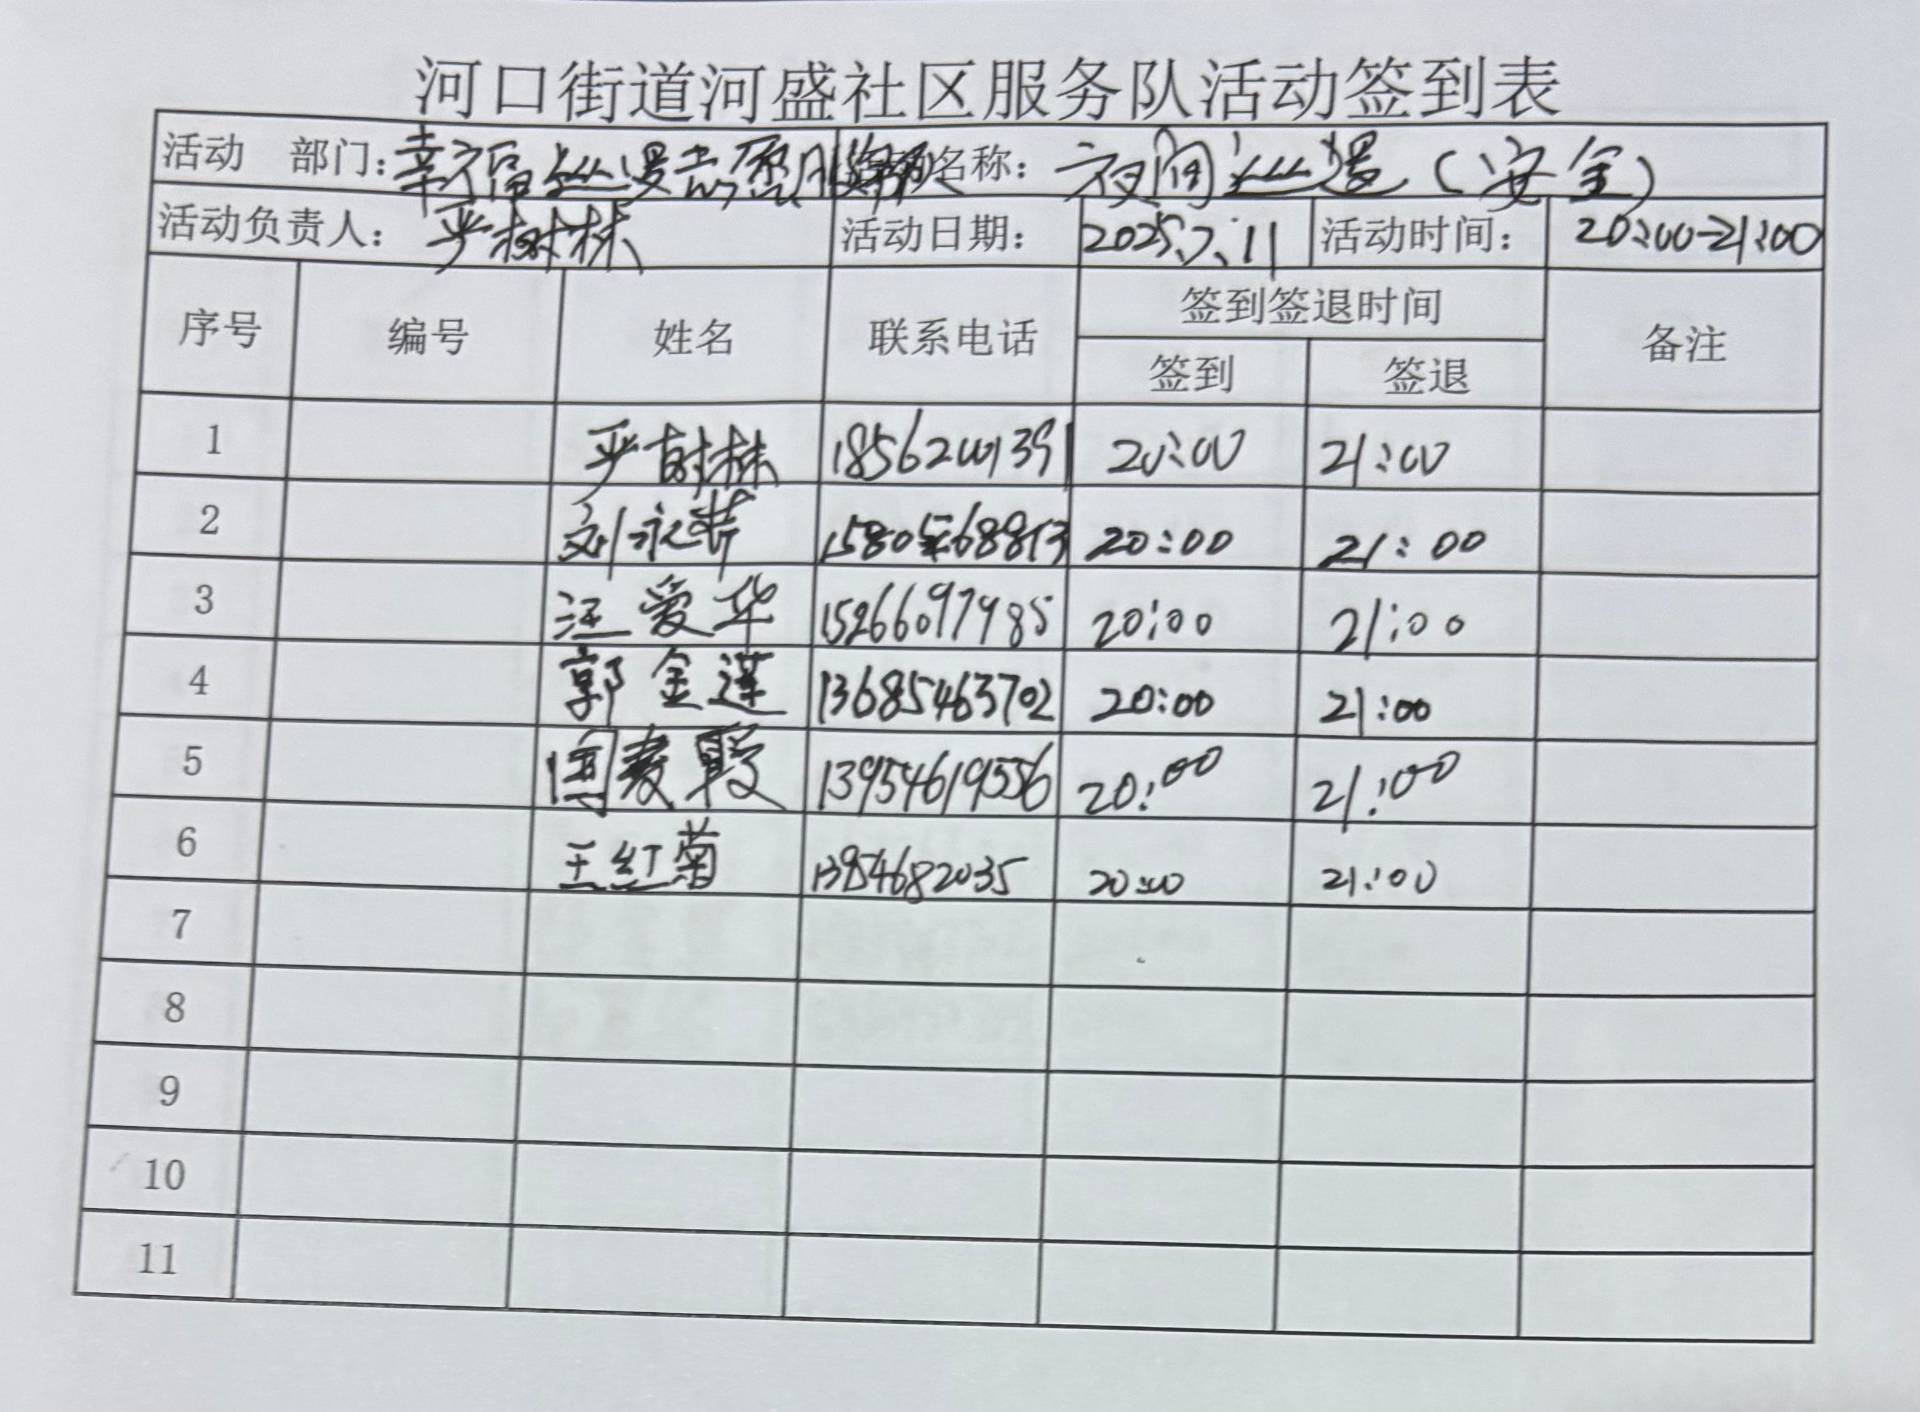 河口街道河盛社区服务队活动签到表
活动 部门：幸福丛漫志愿服务队 名称： 夜间巡逻（安全）
活动负责人： 严树林 活动日期： 2025.7.11 活动时间： 20:00-21:00
序号 编号 姓名 联系电话 签到签退时间 备注
签到 签退
1 严树林 18562001391 20:00 21:00
2 刘永芹 20:00 21:00
3 汪爱华 15266097985 20:00 21:00
4 郭金莲 13685463702 20:00 21:00
5 13954619556 20:00 21:00
6 王红菊 13954682035 20:00 21:00
7
8
9
10
11